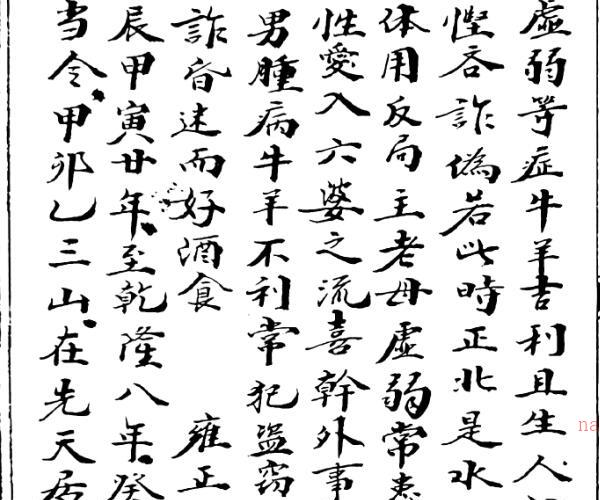 虛弱等症牛羊吉利且生人
慳吝詐偽若此時正北是水
体用反局主老母虛弱常患
性愛入六婆之流喜幹外事
男腫病牛羊不利常犯盜竊
詐昏迷而好酒食 雍正
辰甲寅廿年至乾隆八年癸
当令甲卯乙三山在先天居
na